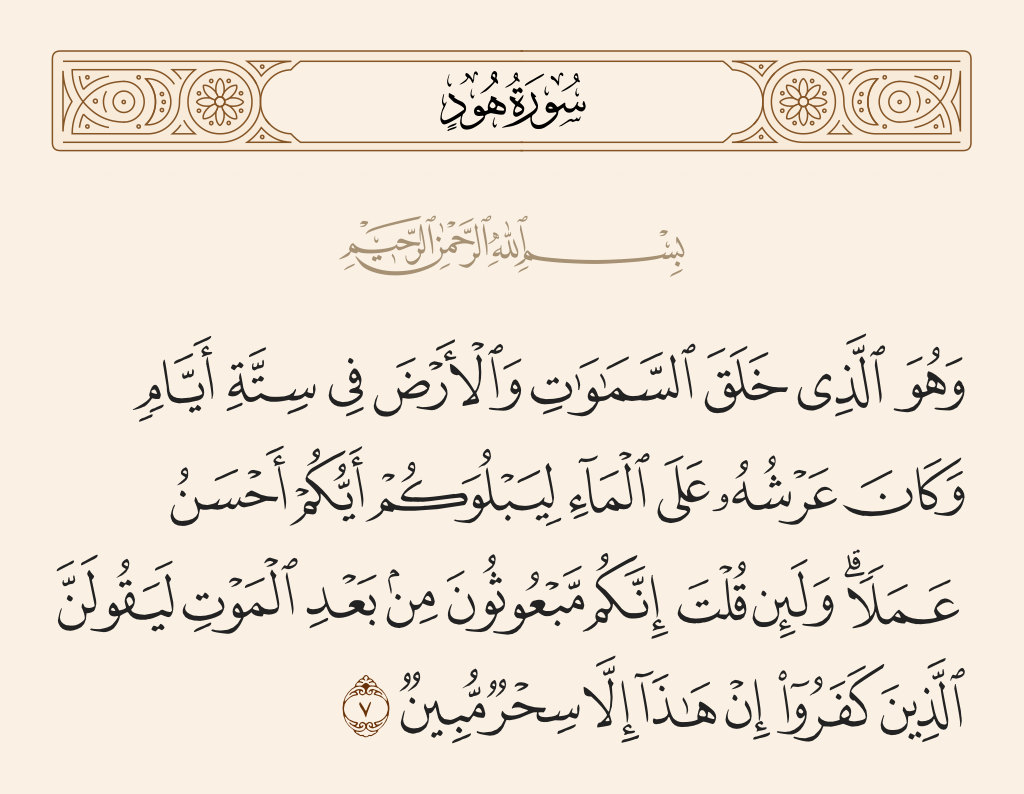 سُورَةُ هُودٍ
بِسْمِ ٱللَّهِ ٱلرَّحْمَٰنِ ٱلرَّحِيمِ
وَهُوَ ٱلَّذِى خَلَقَ ٱلسَّمَٰوَٰتِ وَٱلْأَرْضَ فِى سِتَّةِ أَيَّامٍ
وَكَانَ عَرْشُهُۥ عَلَى ٱلْمَآءِ لِيَبْلُوَكُمْ أَيُّكُمْ أَحْسَنُ
عَمَلًا ۗ وَلَئِن قُلْتَ إِنَّكُم مَّبْعُوثُونَ مِنۢ بَعْدِ ٱلْمَوْتِ لَيَقُولَنَّ
ٱلَّذِينَ كَفَرُوٓا۟ إِنْ هَٰذَآ إِلَّا سِحْرٌ مُّبِينٌ ٧